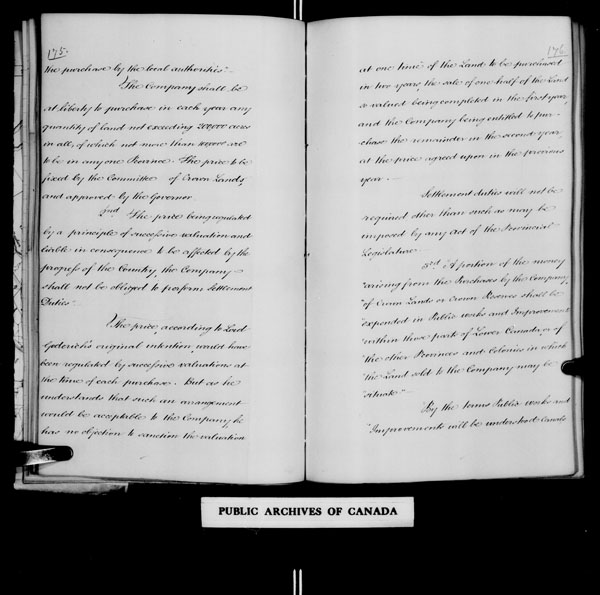 175.
the purchase by the local authorities"—
"The Company shall be
at liberty to purchase in each year any
quantity of land not exceeding 200,000 acres
in all, of which not more than are
to be in any one Province. The price to be
fixed by the Committee of Crown Lands,
and approved by the Governor
2nd The price being regulated
by a principle of successive valuation and
liable in consequence to be affected by the
progress of the Country, the Company
shall not be obliged to perform Settlement
Duties"
The price, according to Lord
Goderich's original intention, would have
been regulated by successive valuations at
the time of each purchase. But as he
understands that such an arrangement
would be acceptable to the Company, he
has no objection to sanction the valuation
176.
at one time of the Land to be purchased
in two years, the sale of one half of the Land
so valued being completed in the first year,
and the Company being entitled to pur-
chase the remainder in the second year,
at the price agreed upon in the previous
year.—
Settlement duties will not be
required other than such as may be
imposed by any Act of the Provincial
Legislature
3rd "A portion of the money
"arising from the Purchases by the Company,
"of Crown Lands or Crown Reserves shall be
"expended in Public works and Improvements
"within those parts of Lower Canada, or of
"the other Provinces and Colonies in which
"the Land sold to the Company may be
"situate"—
"By the terms Public works and
"Improvements will be understood Canals
PUBLIC ARCHIVES OF CANADA